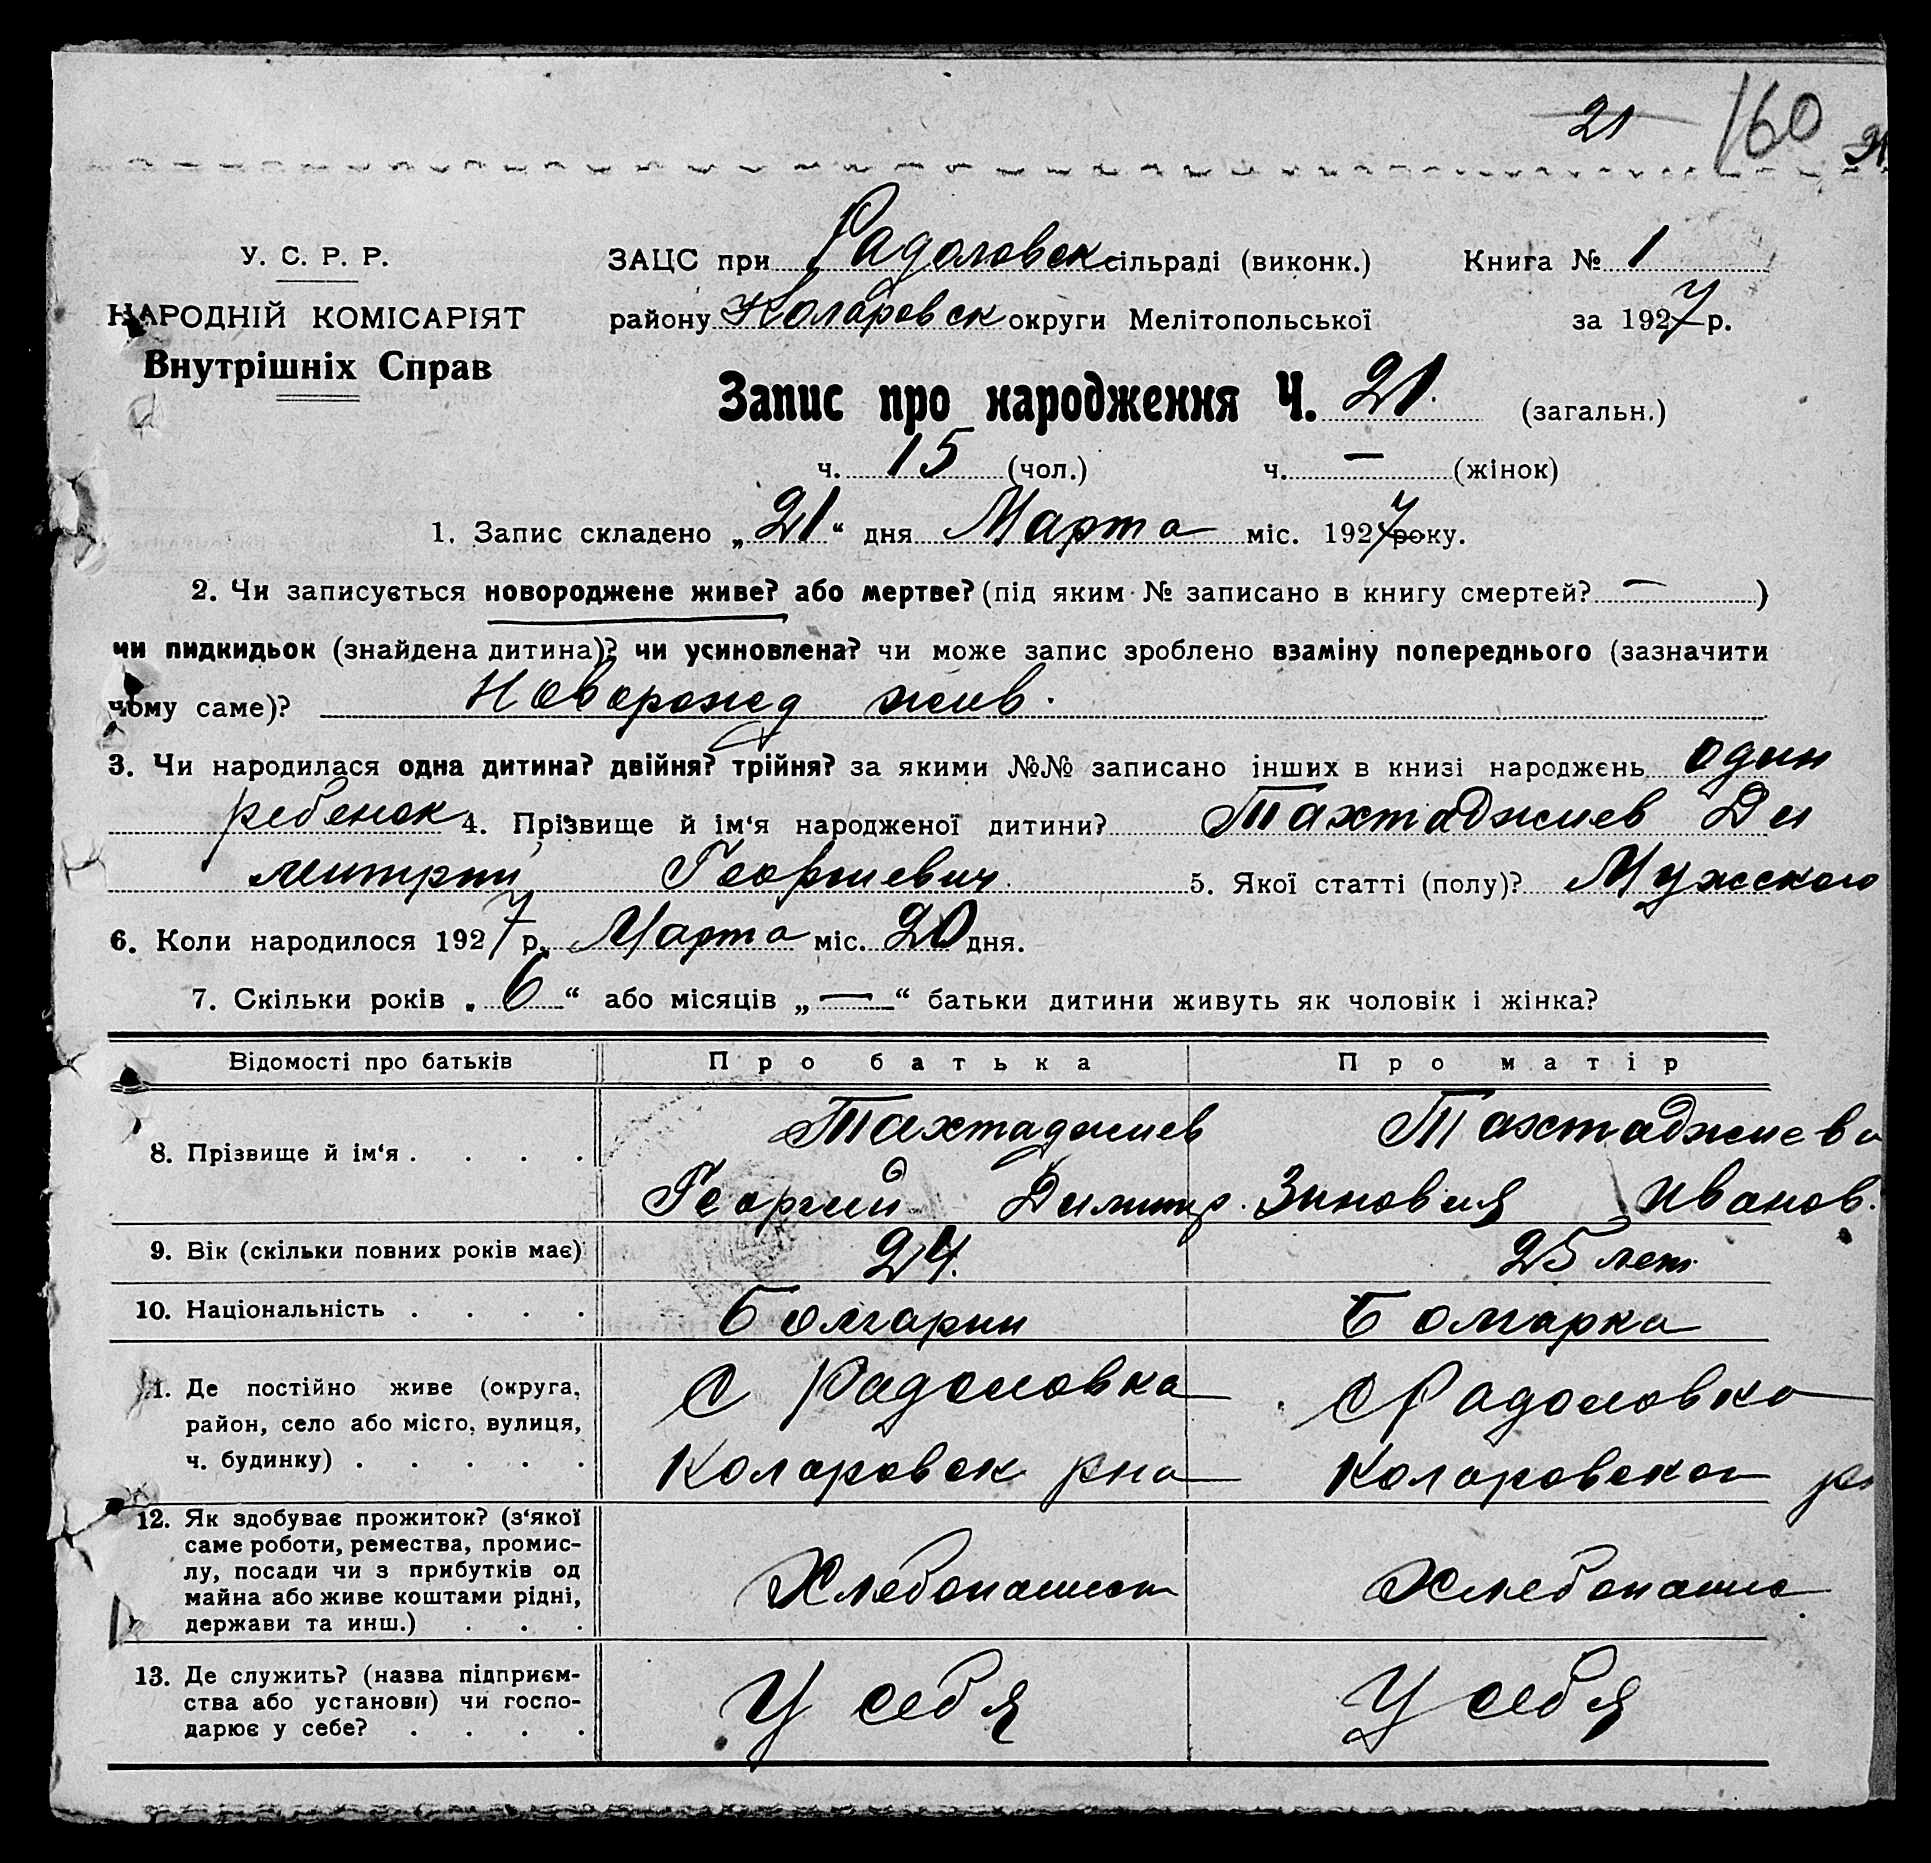 21 160
У. С. Р. Р.
НАРОДНІЙ КОМІСАРІЯТ
Внутрішніх Справ
ЗАЦС при Радоловск сільраді (виконк.) Книга № 1
району Коларовск округи Мелітопольської за 1927 р.
Запис про народження Ч. 21. (загальн.)
ч. 15 (чол.) ч. — (жінок)
1. Запис складено „21“ дня Марта міс. 1927 року.
2. Чи записується новороджене живе? або мертве? (під яким № записано в книгу смертей? — )
чи пидкидьок (знайдена дитина)? чи усиновлена? чи може запис зроблено взаміну попереднього (зазначити
чому саме)?Новорожд жив.
3. Чи народилася одна дитина? двійня? трійня? за якими №№ записано інших в книзі народжень один
ребенок 4. Прізвище й ім‘я народженої дитини? Тахтаджиев Ди
митрий Георгиевич. 5. Якої статті (полу)? Мужского
6. Коли народилося 1927 р. Марта міс. 20 дня.
7. Скільки років „6“ або місяців „—“ батьки дитини живуть як чоловік і жінка?
Відомості про батьків Про батька Про матір
8. Прізвище й ім‘я . . . . Тахтаджиев Тахтаджиева
Георгий Димитр. Зиновия Иванов.
9. Вік (скільки повних років має) 24. 25 лет
10. Національність . . . . Болгарин Болгарка
11. Де постійно живе (округа, район, село або місто, вулиця, ч. будинку) . . . . . С Радоловка С Радоловка
Коларовск рна Коларовского р
12. Як здобуває прожиток? (з‘якої
саме роботи, ремества, промис-
лу, посади чи з прибутків од
майна або живе коштами рідні,
держави та инш.) . . . Хлебопашест Хлебопаше
13. Де служить? (назва підприєм-
ства або установи) чи госпо-
дарює у себе? . . . . У себя У себя